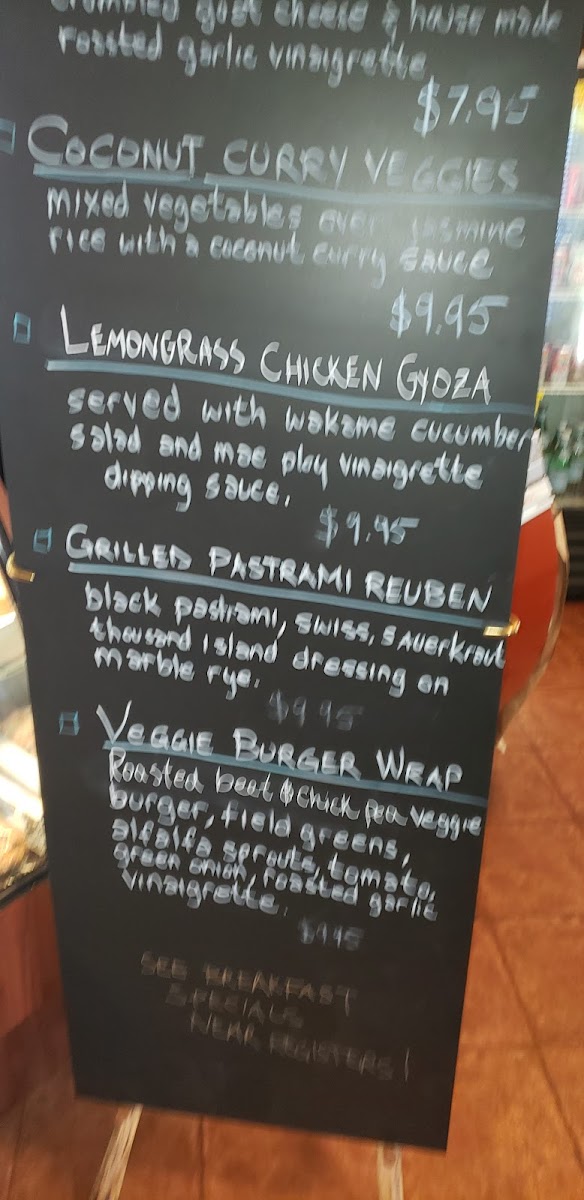 crumbled goat cheese & house made
roasted garlic vinaigrette
$7.95
COCONUT CURRY VEGGIES
mixed vegetables over jasmine
rice with a coconut curry sauce
$9.95
LEMONGRASS CHICKEN GYOZA
served with wakame cucumber
salad and mae ploy vinaigrette
dipping sauce.
$9.95
GRILLED PASTRAMI REUBEN
black pastrami, swiss, sauerkraut
thousand island dressing on
marble rye.
$9.95
VEGGIE BURGER WRAP
Roasted beet & chick pea veggie
burger, field greens,
alfalfa sprouts, tomato,
green onion, roasted garlic
vinaigrette.
$9.95
SEE BREAKFAST
SPECIALS
NEAR REGISTERS!